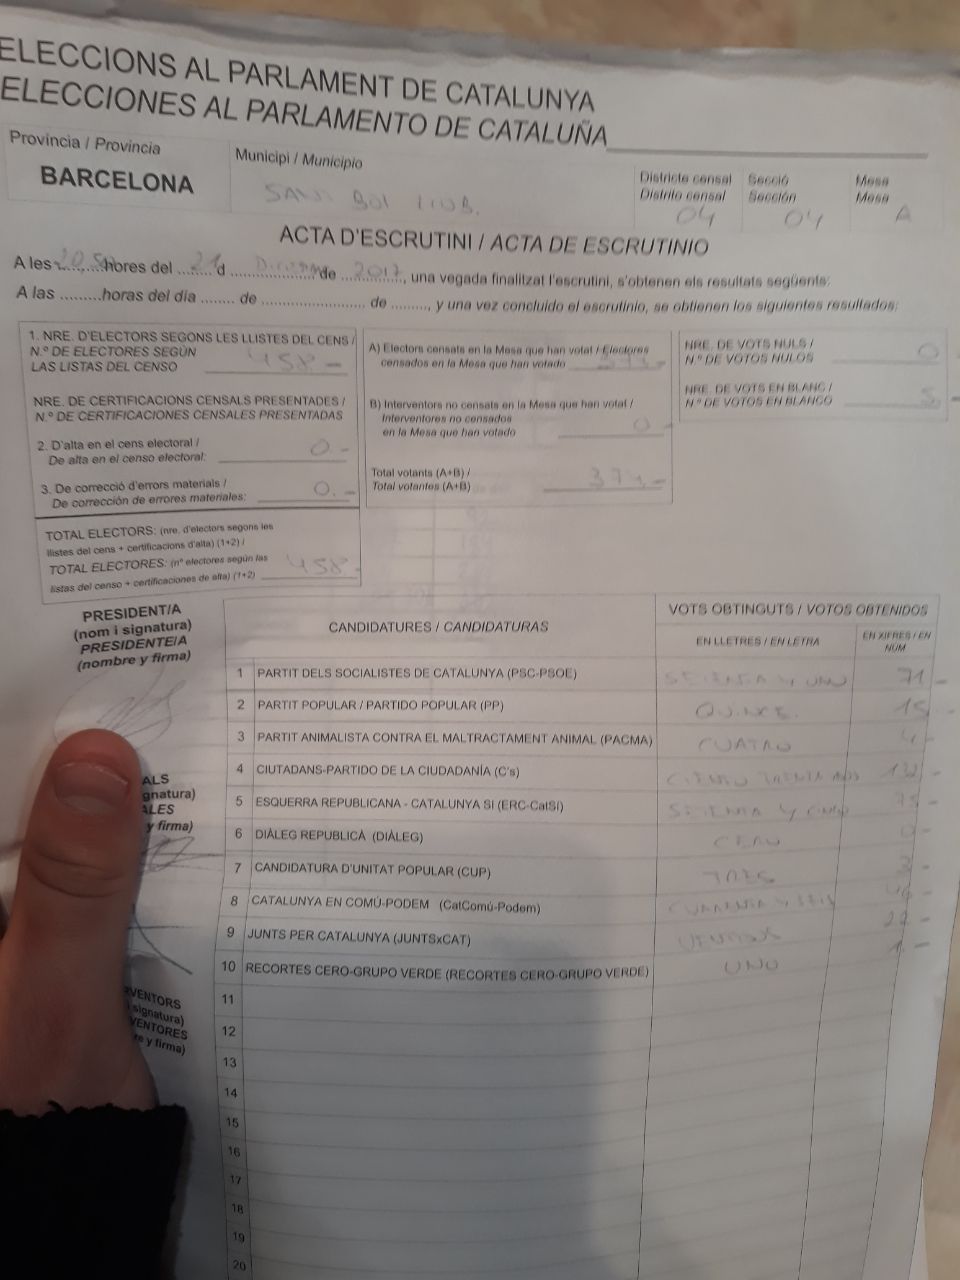 ELECCIONS AL PARLAMENT DE CATALUNYA
ELECCIONES AL PARLAMENTO DE CATALUÑA
Provincia / Provincia
BARCELONA
Municipi / Municipio
SANT BOI LLOB.
Districte censal
Distrito censal
04
Secció
Sección
04
Mesa
Mesa
A
ACTA D'ESCRUTINI / ACTA DE ESCRUTINIO
A les ......... hores del 21 d ............ de 2017, una vegada finalitzat l'escrutini, s'obtenen els resultats següents:
A las .........horas del día ........ de ......................... de ........., y una vez concluido el escrutinio, se obtienen los siguientes resultados:
1. NRE. D'ELECTORS SEGONS LES LLISTES DEL CENS /
N.º DE ELECTORES SEGÚN
LAS LISTAS DEL CENSO 458-
NRE. DE CERTIFICACIONS CENSALS PRESENTADES /
N.º DE CERTIFICACIONES CENSALES PRESENTADAS
2. D'alta en el cens electoral /
De alta en el censo electoral: 0-
3. De correcció d'errors materials /
De corrección de errores materiales: 0.-
TOTAL ELECTORS: (nre. d'electors segons les
llistes del cens + certificacions d'alta) (1+2) /
TOTAL ELECTORES: (nº electores según las
listas del censo + certificaciones de alta) (1+2) 458-
A) Electors censats en la Mesa que han votat / Electores
censados en la Mesa que han votado
B) Interventors no censats en la Mesa que han votat /
Interventores no censados
en la Mesa que han votado 0-
Total votants (A+B) /
Total votantes (A+B)
NRE. DE VOTS NULS /
N.º DE VOTOS NULOS 0
NRE. DE VOTS EN BLANC /
N.º DE VOTOS EN BLANCO 5
PRESIDENT/A
(nom i signatura)
PRESIDENTE/A
(nombre y firma)
ALS
gnatura)
ALES
y firma)
RVENTORS
signatura)
VENTORES
re y firma)
CANDIDATURES / CANDIDATURAS
VOTS OBTINGUTS / VOTOS OBTENIDOS
EN LLETRES / EN LETRA
EN XIFRES / EN
NÚM
1 PARTIT DELS SOCIALISTES DE CATALUNYA (PSC-PSOE) SETENTA Y UNO 71-
2 PARTIT POPULAR / PARTIDO POPULAR (PP) QUINCE. 15-
3 PARTIT ANIMALISTA CONTRA EL MALTRACTAMENT ANIMAL (PACMA) CUATRO 4-
4 CIUTADANS-PARTIDO DE LA CIUDADANÍA (C's) CIENTO TREINTA DOS 132-
5 ESQUERRA REPUBLICANA - CATALUNYA SI (ERC-CatSí) SETENTA Y CINCO 75-
6 DIÀLEG REPUBLICÀ (DIÀLEG) CERO 0-
7 CANDIDATURA D'UNITAT POPULAR (CUP) TRES 3-
8 CATALUNYA EN COMÚ-PODEM (CatComú-Podem) CUARENTA Y SEIS 46-
9 JUNTS PER CATALUNYA (JUNTSxCAT)
10 RECORTES CERO-GRUPO VERDE (RECORTES CERO-GRUPO VERDE) UNO 1-
11
12
13
14
15
16
17
18
19
20